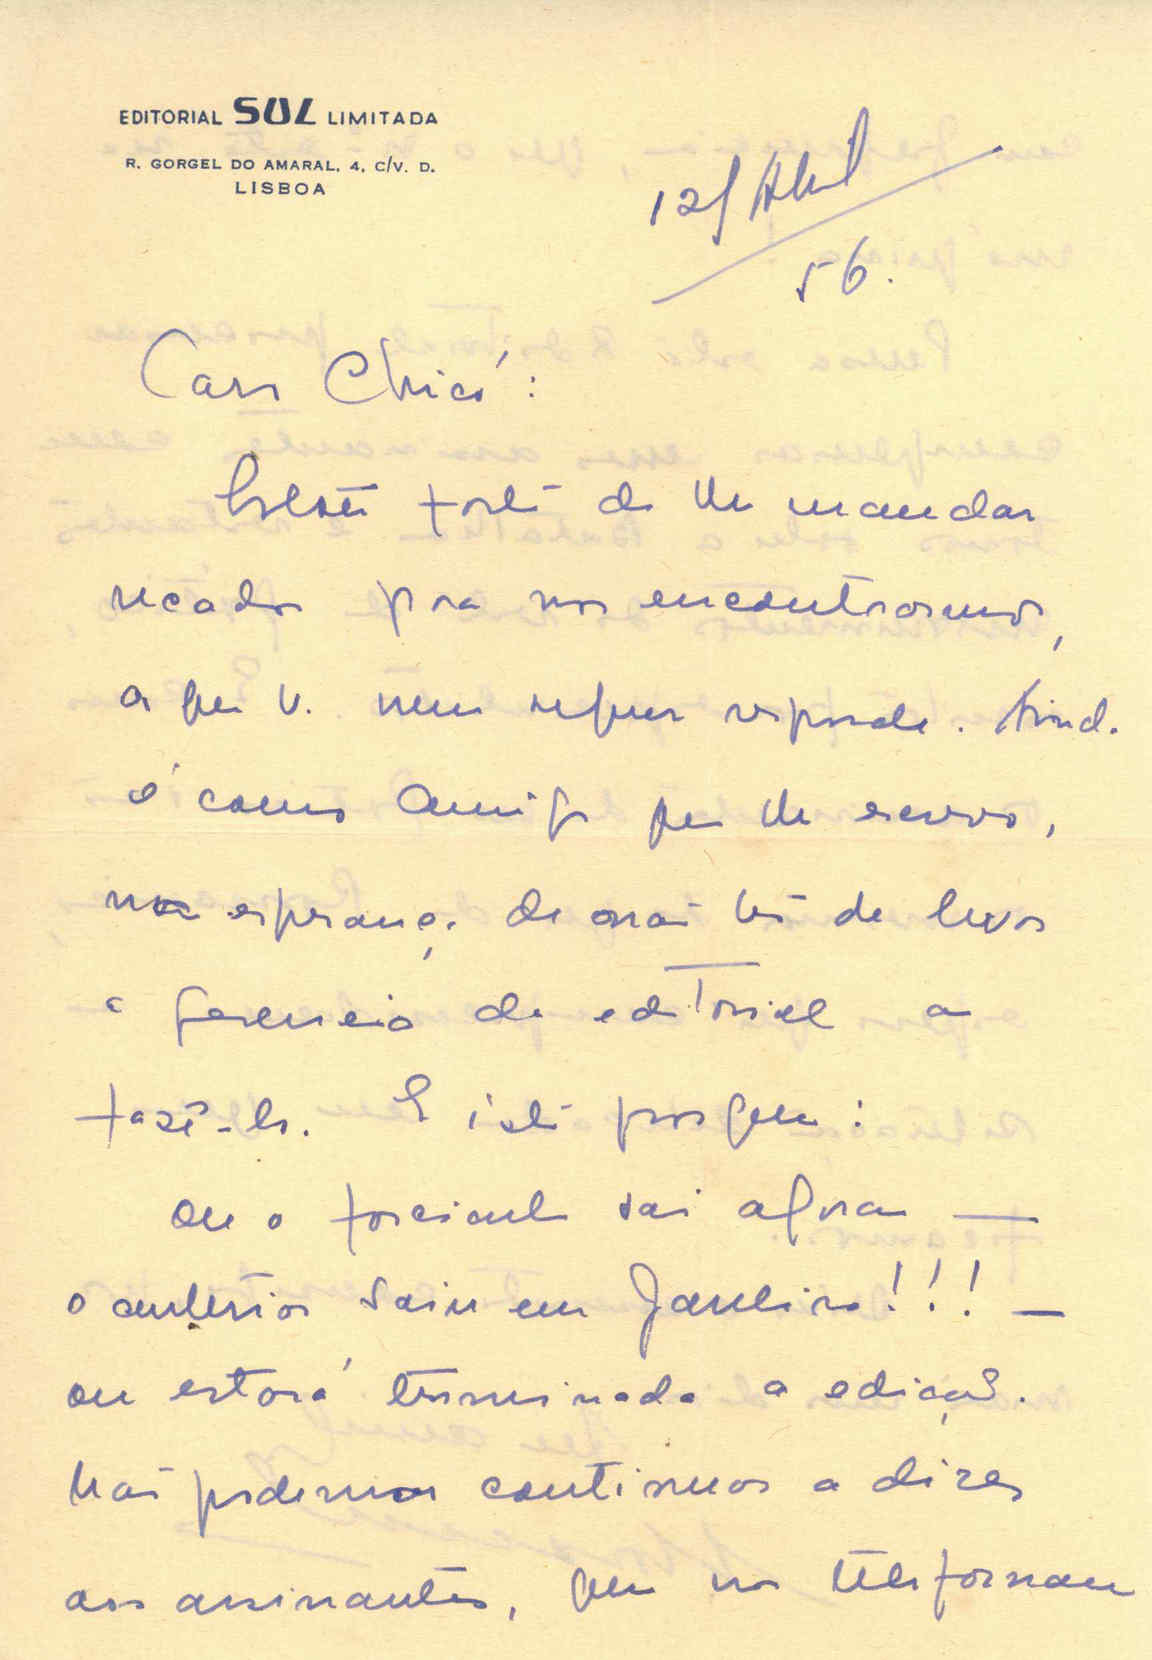 EDITORIAL SUL LIMITADA
R. GORGEL DO AMARAL, 4, C/V. D.
LISBOA
12/Abril
56.
Caro Chicó:
farto de lhe mandar
recados pra nos encontrarmos,
a que V. nem sequer responde. Aind.
é como amigo que lhe escrevo,
na esperança de não ter de levar
a gerencia da editorial a
fazê-lo. E isto porque:
ou o fasciculo sai agora —
o anterior saiu em Janeiro!!! —
ou estará terminada a edição.
Não podemos continuar a dizer
aos assinantes, que nos telefonam